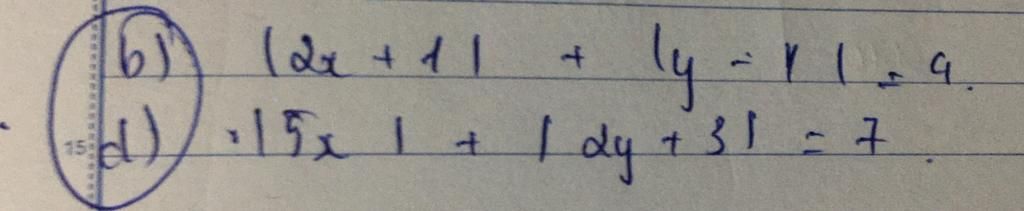 b) |2x + 1| + |y - 1| = 4.
15 d) |5x| + |2y + 3| = 7.